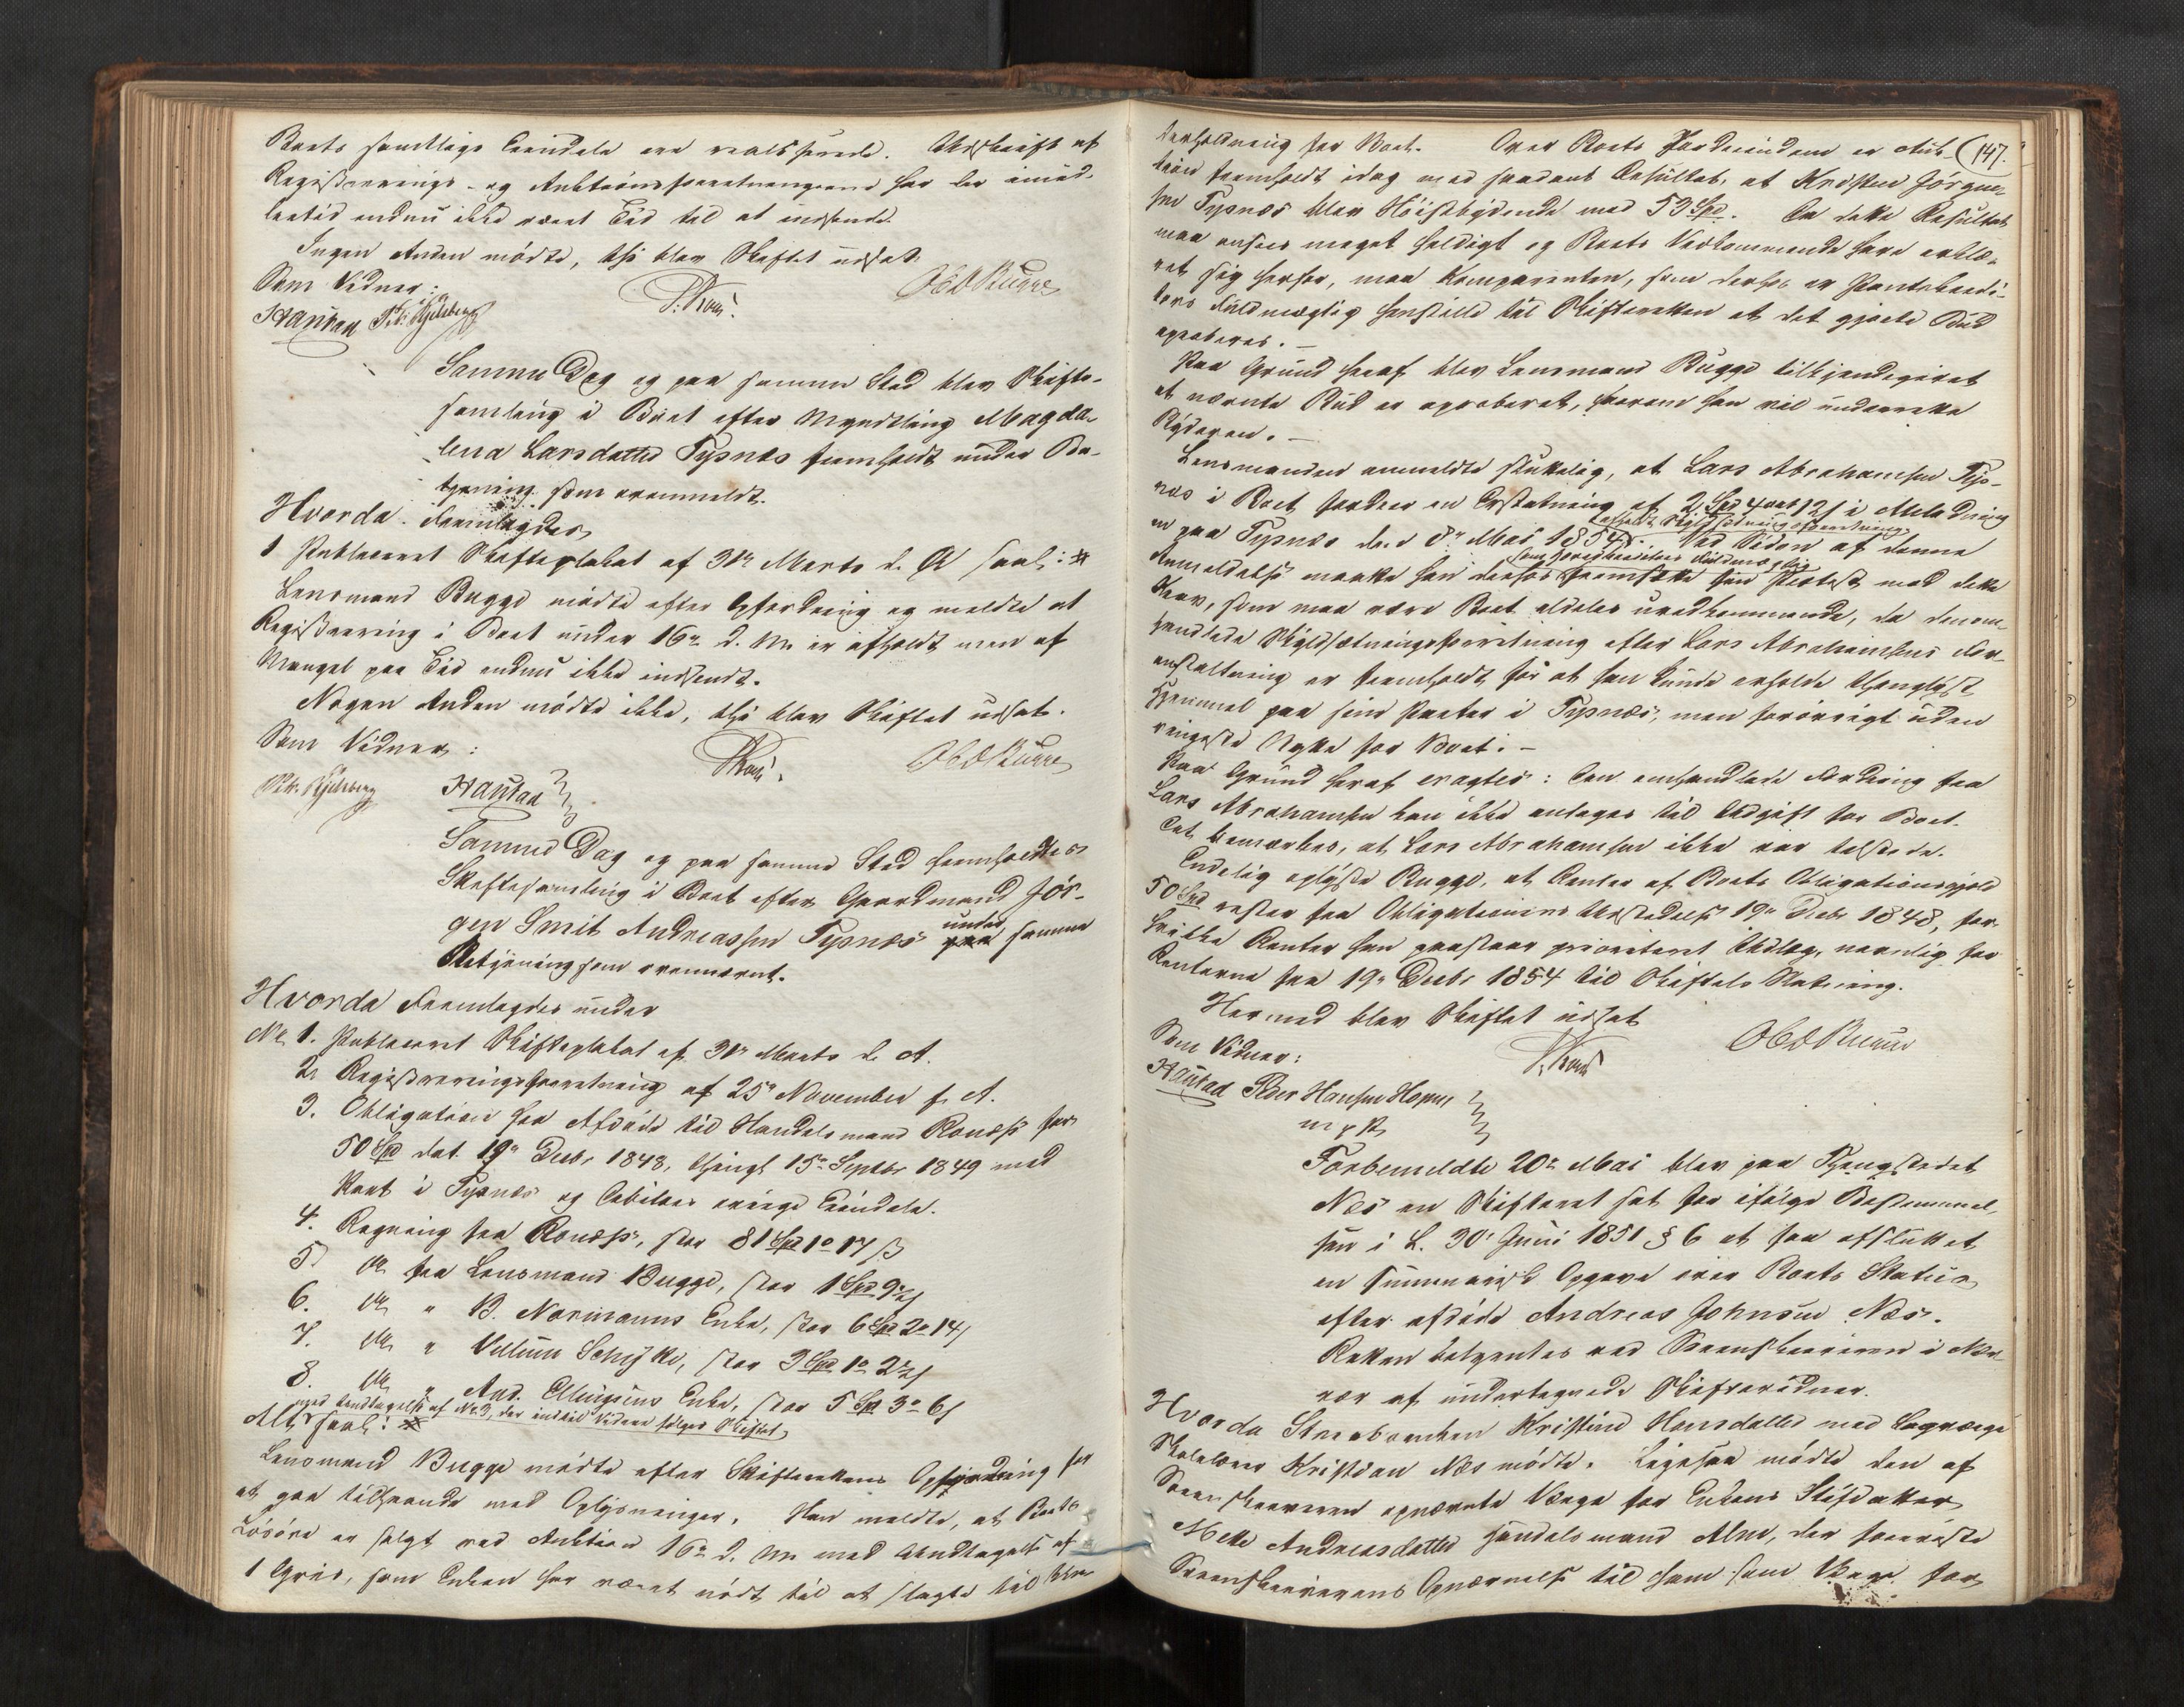 Boets samtlige Eiendele ere realiserede. Udskrift af
Registrerings- og Auktionsforretningerne har der imid-
lertid endnu ikke været Tid til at indsende.
Ingen Anden mødte, thi blev Skiftet udsat.
Som Vidner:
Haustad
Samme Dag og paa samme Sted blev Skifte-
samling i Boet efter Myndtling Magda-
lena Larsdatter Tysnes fremholdt under Be-
tjening som ovenmeldt.
Hvorda fremlagdes
1 Publiceret Skifteplakat af 31te Marts d. A. saal: #
Lensmand Bugge mødte efter Opfordring og meldte at
Registrering i Boet under 16de d. M. er afholdt men af
Mangel paa Tid endnu ikke indsendt.
Nogen Anden mødte ikke, thi blev Skiftet udsat.
Som Vidner:
Haustad
Samme Dag og paa samme Sted fremholdtes
Skiftesamling i Boet efter Gaardmand Jör-
gen Smit Andreassen Tysnes under samme
Betjening som ovennævnt.
Hvorda Fremlagdes under
No 1. Publiceret Skifteplakat af 31te Marts d. A.
2. Registreringsforretning af 25de November f. A.
3. Obligation fra Afdöde til Handelsmand Rones for
50 Spd dat. 19de Decbr 1848, thingl. 15de Septbr 1849 med
Pant i Tysnes og Debitors øvrige Eiendele.
4. Regning fra Rones, stor 81 Spd 1 o 17 ß
5. do fra Lensmand Bugge, stor 1 Spd 9 ß
6. do " B. Normanns Enke, stor 6 Spd 2 o 14 ß
7. do " Villum Schytte, stor 3 Spd 1 o 2 ß
8. do " And. Enke, stor 5 Spd 3 o 6 ß
med Undtagelse af No 3, der indtil Videre følger Skiftet,
Alt saal: #
Lensmand Bugge mødte efter Skifterettens Opfordring for
at gaa tilhaande med Oplysninger. Han meldte, at Boets
Lösöre er solgt ved Auktion 16de d. M. med Undtagelse af
1 Gris, som Enken har været nödt til at slagte til
147.
derholdning for Boet. Over Boets Jordeiendom er Auk-
tion fremholdt idag med saadant Resultat, at Kristen Jörgen-
sen Tysnes blev Höistbydende med 53 Spd. Da dette Resultat
maa ansees meget heldigt og Boets Vedkommende have erklæ-
ret sig herfor, maa Komparenten, som derhos er Pantekredi-
tors Fuldmægtig henstille til Skifteretten at det gjorte Bud
approberes. -
Paa Grund heraf blev Lensmand Bugge tilkjendegivet
at nævnte Bud er approberet, hvorom han vil underrette
Byderen. -
Lensmanden anmeldte skriftlig, at Lars Abrahamsen Tys-
nes i Boet fordrer en Erstatning af 2 Spd 4 ort 12 ß i Anledning
afholdt Skyldsætningsforretning
en paa Tysnes den 8de Mai 1854. Ved Siden af denne
som Hovedkreditors Fuldmægtig
Anmeldelse maatte han derhos fremsætte sin Protest mod dette
Krav, som maa være Boet aldeles uvedkommende, da denom-
handlede Skyldsætningsforretning efter Lars Abrahamsens For-
anstaltning er fremholdt for at han kunde erholde thinglyst
Hjemmel paa sine Parter i Tysnes, men forövrigt uden
ringeste Nytte for Boet. -
Paa Grund heraf eragtes: Den omhandlede Fordring fra
Lars Abrahamsen kan ikke antages til Udgift for Boet.
Det bemærkes, at Lars Abrahamsen ikke var tilstede.
Endelig oplyste Bugge, at Renter af Boets Obligationsgjeld
50 Spd rester fra Obligationens Udstedelse 19de Decbr 1848, for
hvilke Renter han paastaar prioriteret Udlæg, nemlig for
Renterne fra 19de Decbr 1854 til Skiftets Slutning.
Hermed blev Skiftet udsat
Som Vidner:
Haustad Peder Hansen
m p P
Forbemeldte 20de Mai blev paa Thingstedet
Næs en Skifteret sat for ifølge Bestemmel-
sen i L. 30te Juni 1851 § 6 at faa afsluttet
en summarisk Opgave over Boets Status
efter afdöde Andreas Johnsen Næs.
Retten betjentes ved Sorenskriveren i Nær-
vær af undertegnede Skiftevidner.
Hvorda Sterbeenken Kristine Hansdatter med Laugværge
Skolelærer Kristian Næs mødte. Ligesaa mødte den af
Sorenskriveren opnævnte Værge for Enkens Stifdatter
Mette Andreasdatter Handelsmand Alm, der foreviste
Sorenskriverens Opnævnelse til ham som Værge for